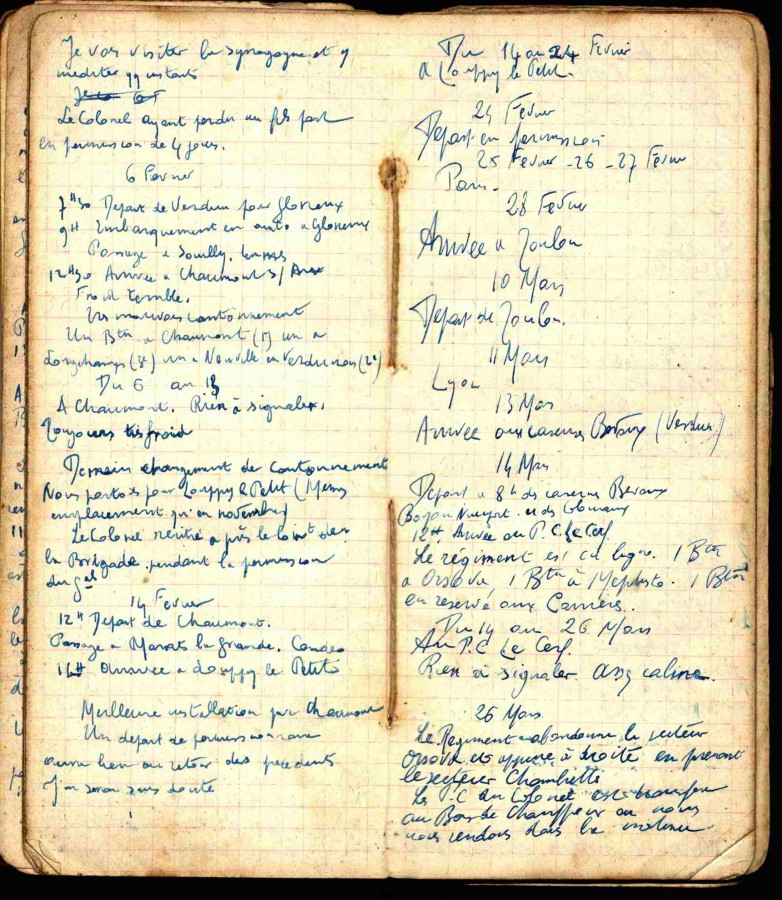 Je vais visiter la synagogue et y
méditer qq instants
Le Colonel ayant perdu un fils part
en permission de 4 jours.
6 Février
7H30 Départ de Verdun pour Glorieux
9H Embarquement en auto à Glorieux
Passage à Souilly.
12H30 Arrivée à Chaumont s/ Aire
Froid terrible.
Très mauvais cantonnement
Un Btn à Chaumont (1) un à
Longchamps (3e) un à Neuville en Verdunois (2e)
Du 6 au 13
A Chaumont. Rien à signaler.
Toujours très froid
Demain changement de cantonnement
Nous partons pour Louppy le Petit (Même
emplacement qu'en novembre)
Le Colonel rentre après le
la Brigade pendant la permission
du Gal
14 Fevrier
12H Départ de Chaumont.
Passage à Marats la Grande. Condé
16H Arrivée à Louppy le Petit
Meilleure installation que Chaumont
Un départ de permissionnaire
aura lieu au retour des précédents
J'en serai sans doute
Du 14 au 24 Fevrier
A Louppy le Petit.
24 Fevrier
Départ en permission
25 Fevrier - 26 - 27 Fevrier
Paris.
28 Fevrier
Arrivée à Toulon
10 Mars
Départ de Toulon.
11 Mars
Lyon
13 Mars
Arrivée aux casernes (Verdun)
14 Mars
Départ à 8h des casernes Bevaux
12H Arrivée au P.C. Le Cerf.
Le régiment est en ligne. 1 Btn
à Orsova, 1 Btn à Mephisto. 1 Btn
en reserve aux Carrières.
Du 14 au 26 Mars
Au P.C. Le Cerf.
Rien à signaler. Assez calme.
26 Mars
Le Régiment abandonne le secteur
Orsova et appuie à droite en prenant
le secteur Chambrettes
Le P.C. du Colonel est transféré
au Bois le Chauffour où nous
nous rendons dans la matinée.